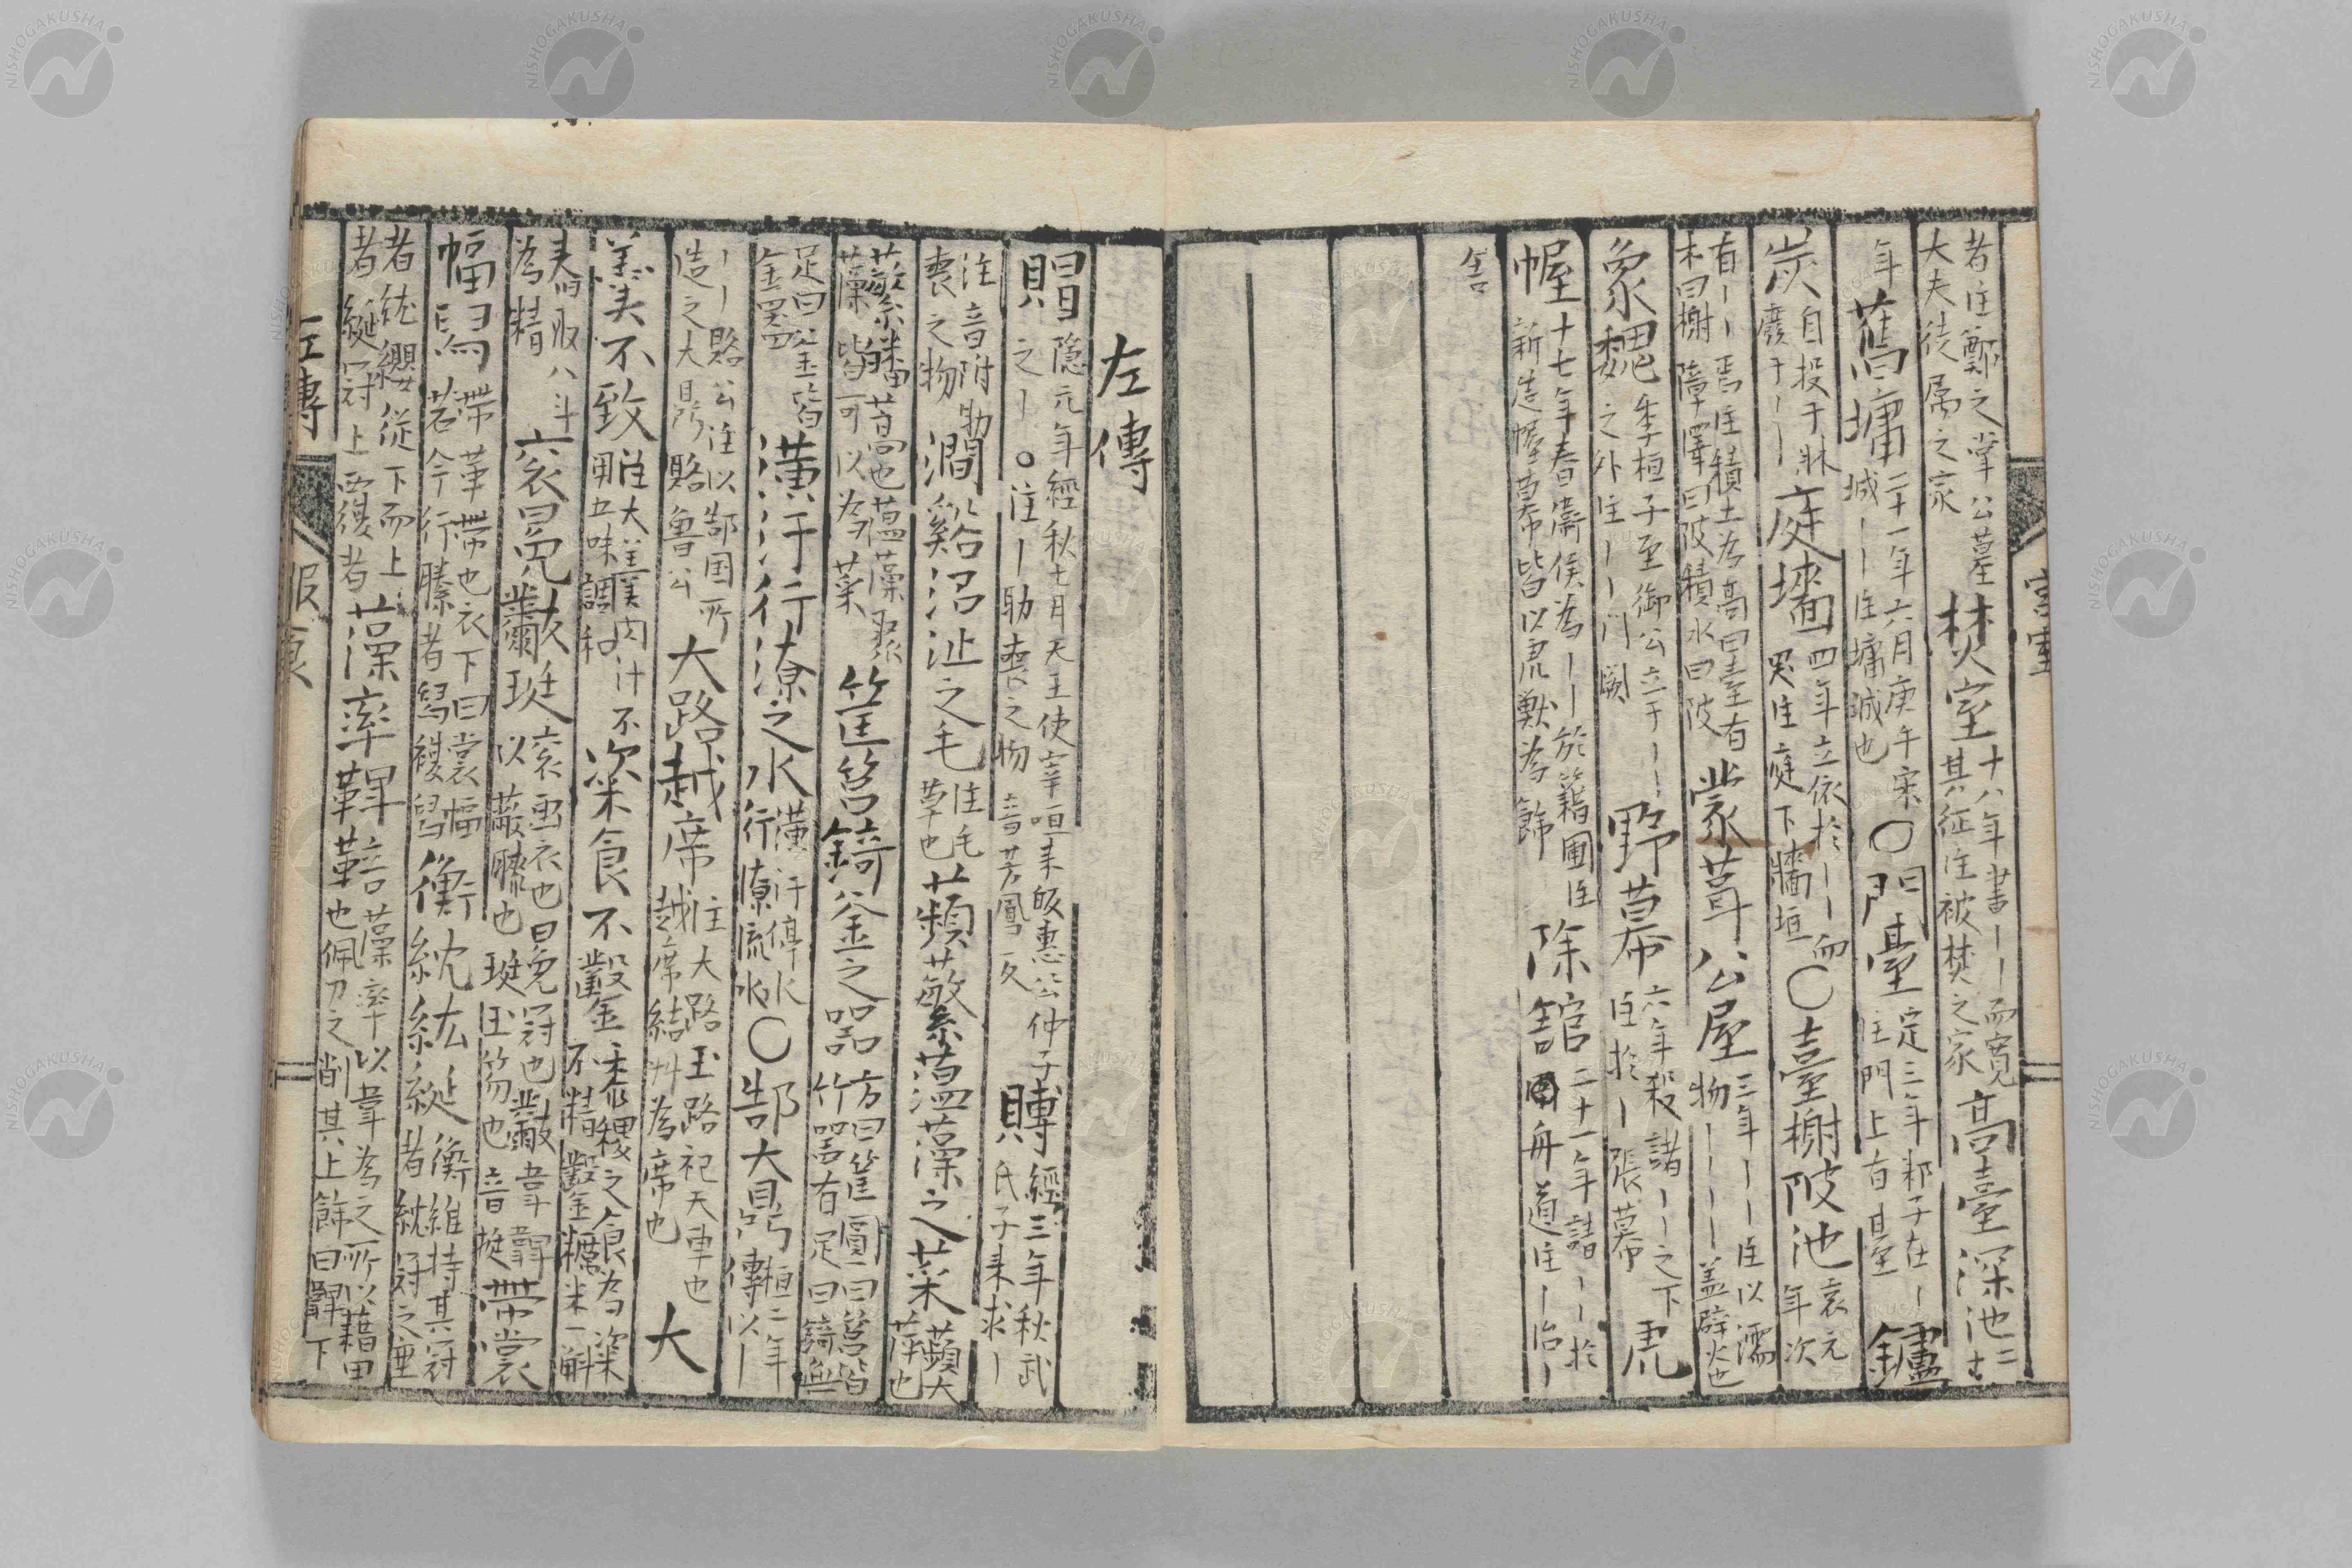 者注鄭之掌公墓
大夫徒屬之家
焚室
十八年書丨丨而寬
其征注被焚之家
高臺深池
二十
年
舊墉
二十一年六月庚午宋
城丨丨注墉城也
○門臺
定三年邾子在丨
注門上有臺
鑪
炭
自投于牀
廢于丨丨
庭墻
四年立依於丨丨而
哭注庭下牆垣
○臺榭陂池
哀元
年次
有丨丨焉注積土為高曰臺有
木曰榭障澤曰陂積水曰陂
蒙葺公屋
三年丨丨注以濡
物丨丨丨丨蓋辟火也
象魏
季桓子至御公立于丨丨
之外注丨丨門闕
野幕
六年殺諸丨丨之下
注於丨張幕
虎
幄
十七年春衛侯為丨丨於籍圃注
新造幄幕皆以虎獸為餙
除舘
二十一年請丨丨於
舟道注丨治丨
舍
左傳
賵
隱元年經秋七月天王使宰咺来皈惠公仲子
之丨○注丨助喪之物 音芳鳳反
賻
經三年秋武
氏子来求丨
注音附助
喪之物
澗谿沼沚之毛
注毛
草也
蘋蘩薀藻之菜
蘋大
萍也
蘩皤蒿也薀藻聚
藻皆可以為菜
筐筥錡釜之器
方曰筐圓曰筥皆
竹器有足曰錡無
足曰釜皆
金器
潢汙行潦之水
潢汙停水
行潦流水
○郜大鼎
桓二年
傳以丨
丨丨賂公注以郜国所
造之大鼎賂魯公
大路越席
注大路玉路祀天車也
越席結艸為席也
大
羹不致
注大羹肉汁不
用五味調和
粢食不鑿
黍稷之食為粢
不精鑿糲米一斛
舂取八斗
為精
袞冕黻珽
袞画衣也冕冠也黻韋韠
以蔽膝也珽玉笏也音挺
帶裳
幅舄
帶革帶也衣下曰裳幅
若今行縢者舄複舄
衡紞紘綖
衡維持其冠
者紞冠之垂
者紘纓從下而上
者綖冠上覆者
藻率鞞鞛
藻率以韋為之所以藉田
也佩刀之削其上餙曰鞞下
左傳
服食
宫室